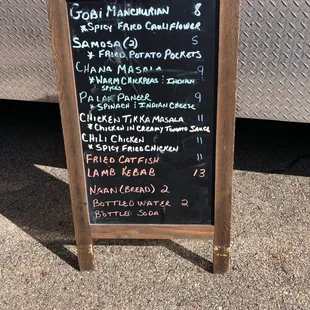 Gobi Manchurian 8
* Spicy Fried Cauliflower
Samosa (2) 5
* Fried Potato Pockets
Chana Masala 9
* Warm Chickpeas : Indian
Spices
Palak Paneer 9
* Spinach : Indian Cheese
Chicken Tikka Masala 11
* Chicken in Creamy Tomato Sauce
Chili Chicken 11
* Spicy Fried Chicken
Fried Catfish 11
Lamb Kebab 13
Naan (Bread) 2
Bottled Water 2
Bottled Soda